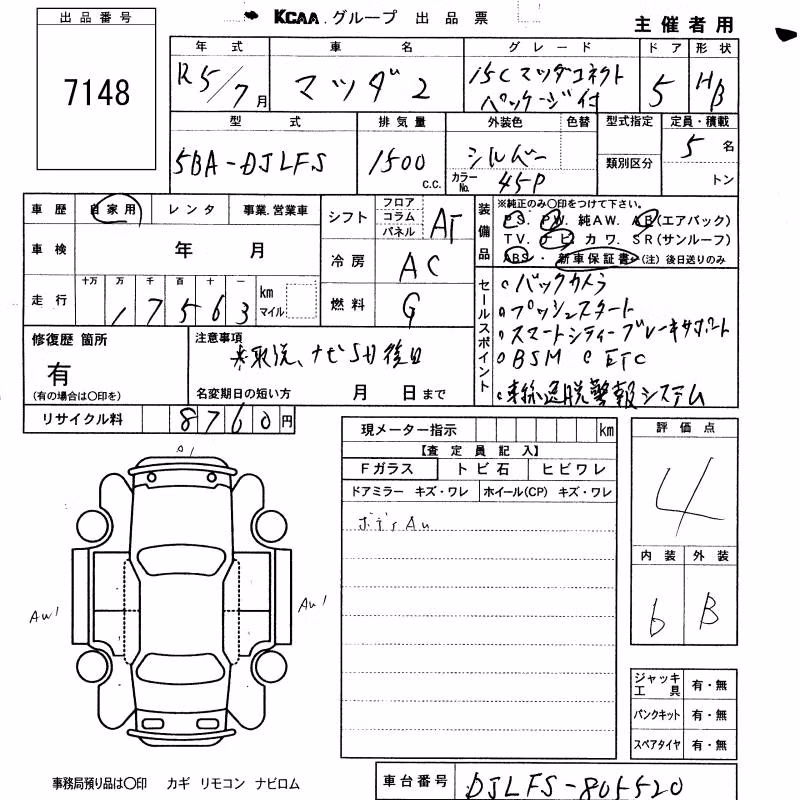 出品番号
7148
KCAA グループ 出品票
主催者用
年式 車名 グレード ドア 形状
R5/7月 マツダ2 15C マツダコネクト パッケージ付 5 HB
型式 排気量 外装色 色替 型式指定 定員・積載
5BA-DJLFS 1500 C.C. シルバー カラーNo. 45P 類別区分 5名 トン
車歴 自家用 レンタ 事業.営業車
車検 年 月
走行 十万 万 千 百 十 一 17563 km マイル
シフト フロア コラム パネル AT
冷房 AC
燃料 G
装備品 ※純正のみ〇印をつけて下さい。
PS. PW. 純AW. AB(エアバック)
TV. ナビ. カワ. SR(サンルーフ)
ABS ・ 新車保証書 (注) 後日送りのみ
セールスポイント
・バックカメラ
・プッシュスタート
・スマートシティーブレーキサポート
・BSM ・ETC
・車線逸脱警報システム
修復歴 箇所
有
(有の場合は〇印を)
注意事項
※取説、ナビSD後日
名変期日の短い方 月 日まで
リサイクル料 8760円
現メーター指示 km
【査定員記入】
Fガラス トビ石 ヒビワレ
ドアミラー キズ・ワレ ホイール(CP) キズ・ワレ
評価点
4
内装 外装
6 B
A1
AW1
AU1
ジャッキ工具 有・無
パンクキット 有・無
スペアタイヤ 有・無
事務局預り品は〇印 カギ リモコン ナビロム
車台番号 DJLFS-805520